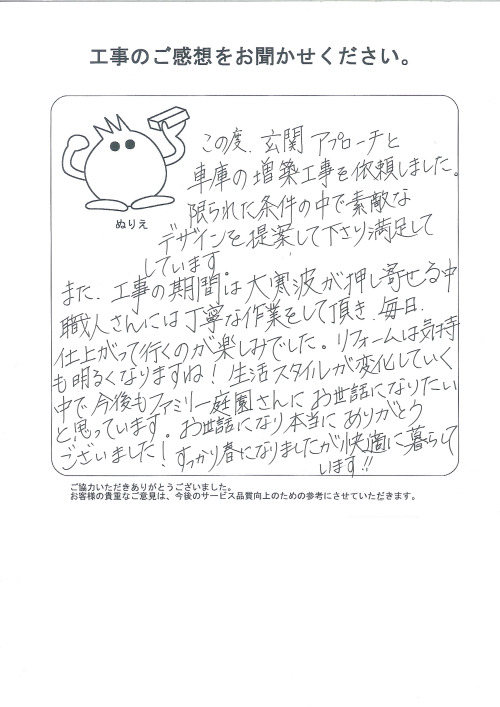 工事のご感想をお聞かせください。
この度、玄関アプローチと
車庫の増築工事を依頼しました。
限られた条件の中で素敵な
デザインを提案して下さり満足して
しています。
ぬりえ
また、工事の期間は大寒波が押し寄せる中
職人さんには丁寧な作業をして頂き、毎日、
仕上がって行くのが楽しみでした。リフォームは気持
も明るくなりますね！生活スタイルが変化していく
中で今後もファミリー庭園さんにお世話になりたい
と思っています。お世話になり本当にありがとう
ございました！すっかり春になりましたが快適に暮らして
います!!
ご協力いただきありがとうございました。
お客様の貴重なご意見は、今後のサービス品質向上のための参考にさせていただきます。